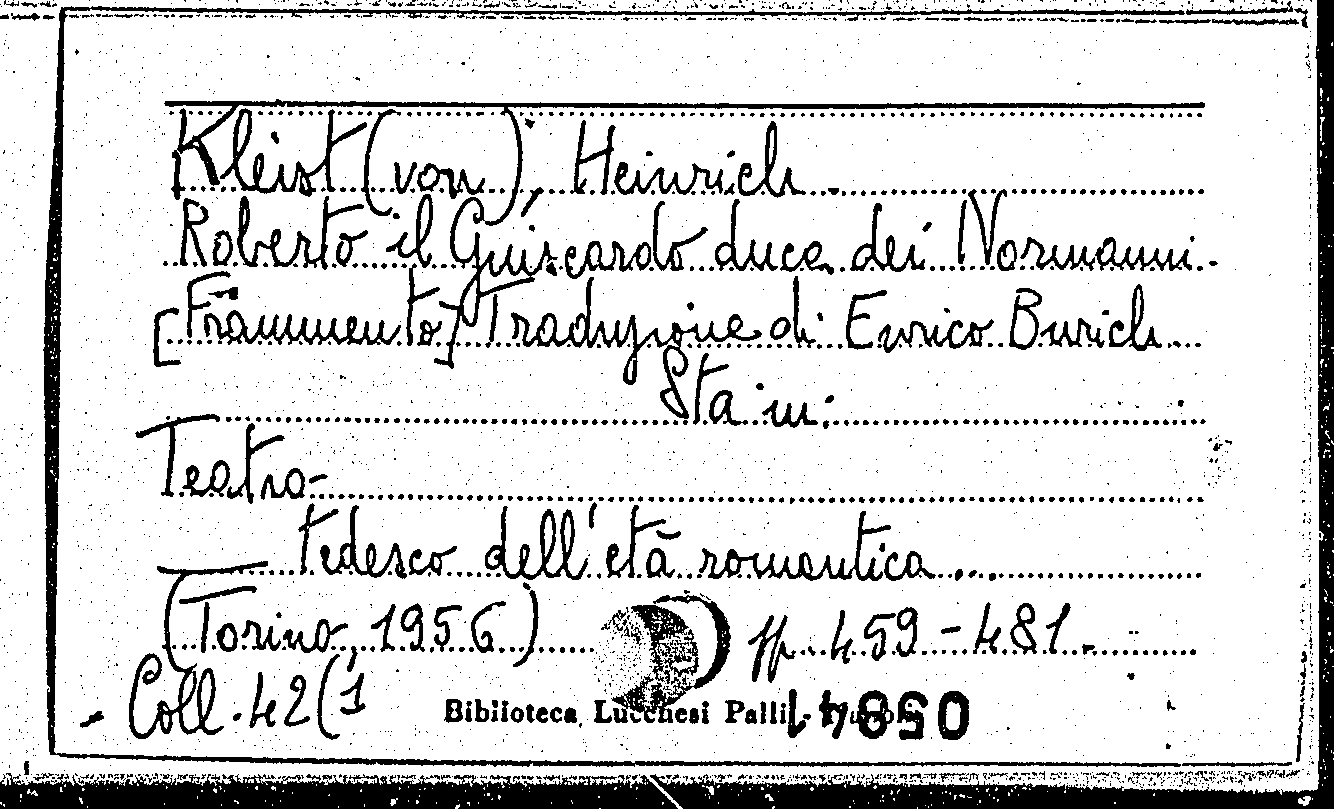 Kleist (von), Heinrich.
Roberto il Guiscardo duca dei Normanni.
[Frammento] Traduzione di Enrico Burich.
Sta in:
Teatro
tedesco dell'età romantica...
(Torino, 1956) pp. 459-481.
- Coll. 42(1
Biblioteca Lucchesi Palli -
05841